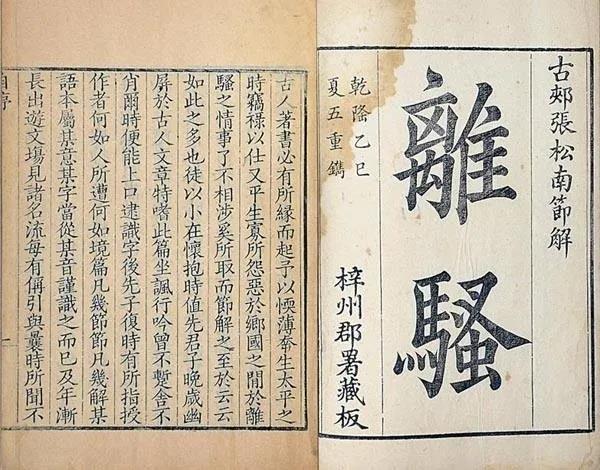 古郟張松南節解
離騷
乾隆乙巳
夏五重鐫
梓州郡署藏板
古人著書必有所緣而起予以愞薄奉生太平之
時竊祿以仕又平生寡所怨惡於鄉國之閒於離
騷之情事了不相涉奚所取而節解之至於云云
如此之多也徒以小在懷抱時值先君子晚歲幽
屏於古人文章特嗜此篇坐諷行吟曾不蹔舍不
肖爾時便能上口逮識字後先子復時有所指授
作者何如人所遭何如境篇凡幾節節凡幾解某
語本屬某意某字當從某音謹識之而已及年漸
長出遊文場見諸名流每有偁引與曩時所聞不
自序
一